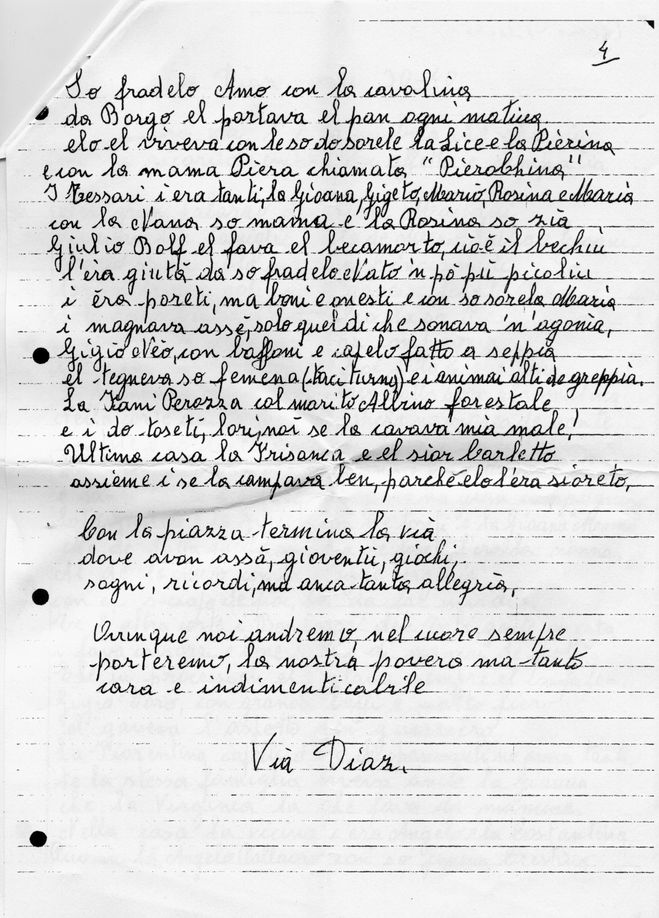 4
So fradelo Amo con la cavalina
da Borgo el portava el pan ogni matina
elo el viveva con le so do sorele la Lice e la Pierina
e con la mama Piera chiamata "Pierolhina"
I Tessari i era tanti, la Gioana, Gigeto, Mario, Rosina e Maria
con la Nana so mama e la Rosina so zia
Giulio Bolf el fava el becamorto, cioè il bechin
l'era giutà da so fradelo Nato 'n pò più picolin
i èra poreti, ma boni e onesti e con so sorela Maria
i magnava assè, solo quei dì che sonava 'n' agonia,
Gigio Nèo, con baffoni e capelo fatto a seppia
el tegneva so femena (taciturna) e i animai alti de greppia.
La Fani Perozza col marito Albino forestale
e i do toseti, lori, noi se la cavava mia male!
Ultima casa la Frisanca e el sior Carletto
assieme i se la campava ben, parchè elo l'era sioreto.
Con la piazza termina la via
dove avon assà, gioventù, giochi,
sogni, ricordi, ma anca tanta allegria,
Ovunque noi andremo, nel cuore sempre
porteremo, la nostra povera ma tanto
cara e indimenticabile
Via Diaz.